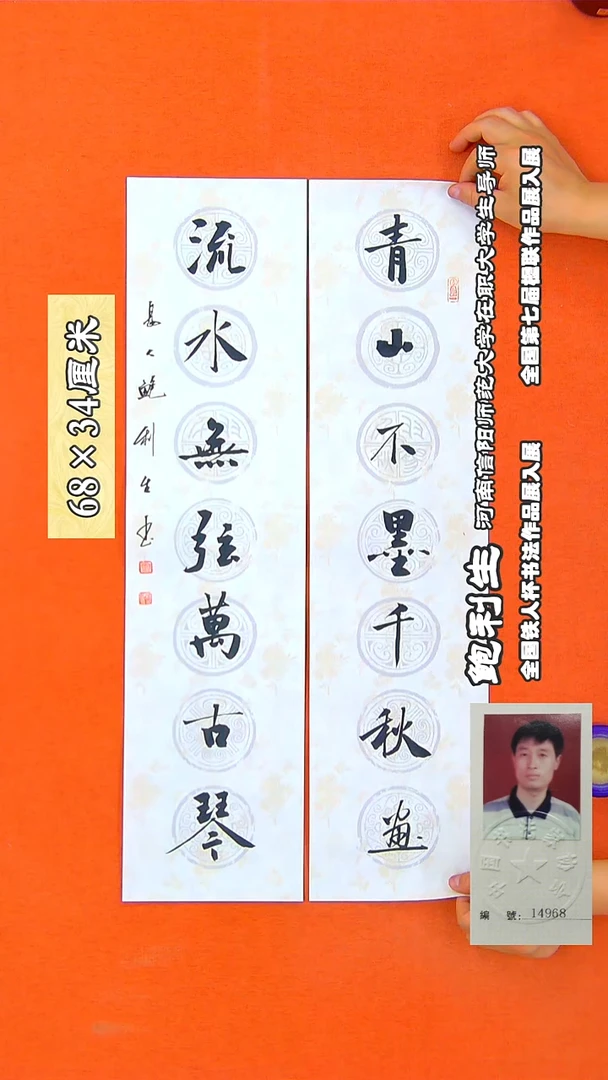 青山不墨千秋畫
流水無弦萬古琴
鲍利生书
68×34厘米
鲍利生 河南信阳师范大学在职大学生导师
全国铁人杯书法作品展入展 全国第七届楹联作品展入展
編 號：14968